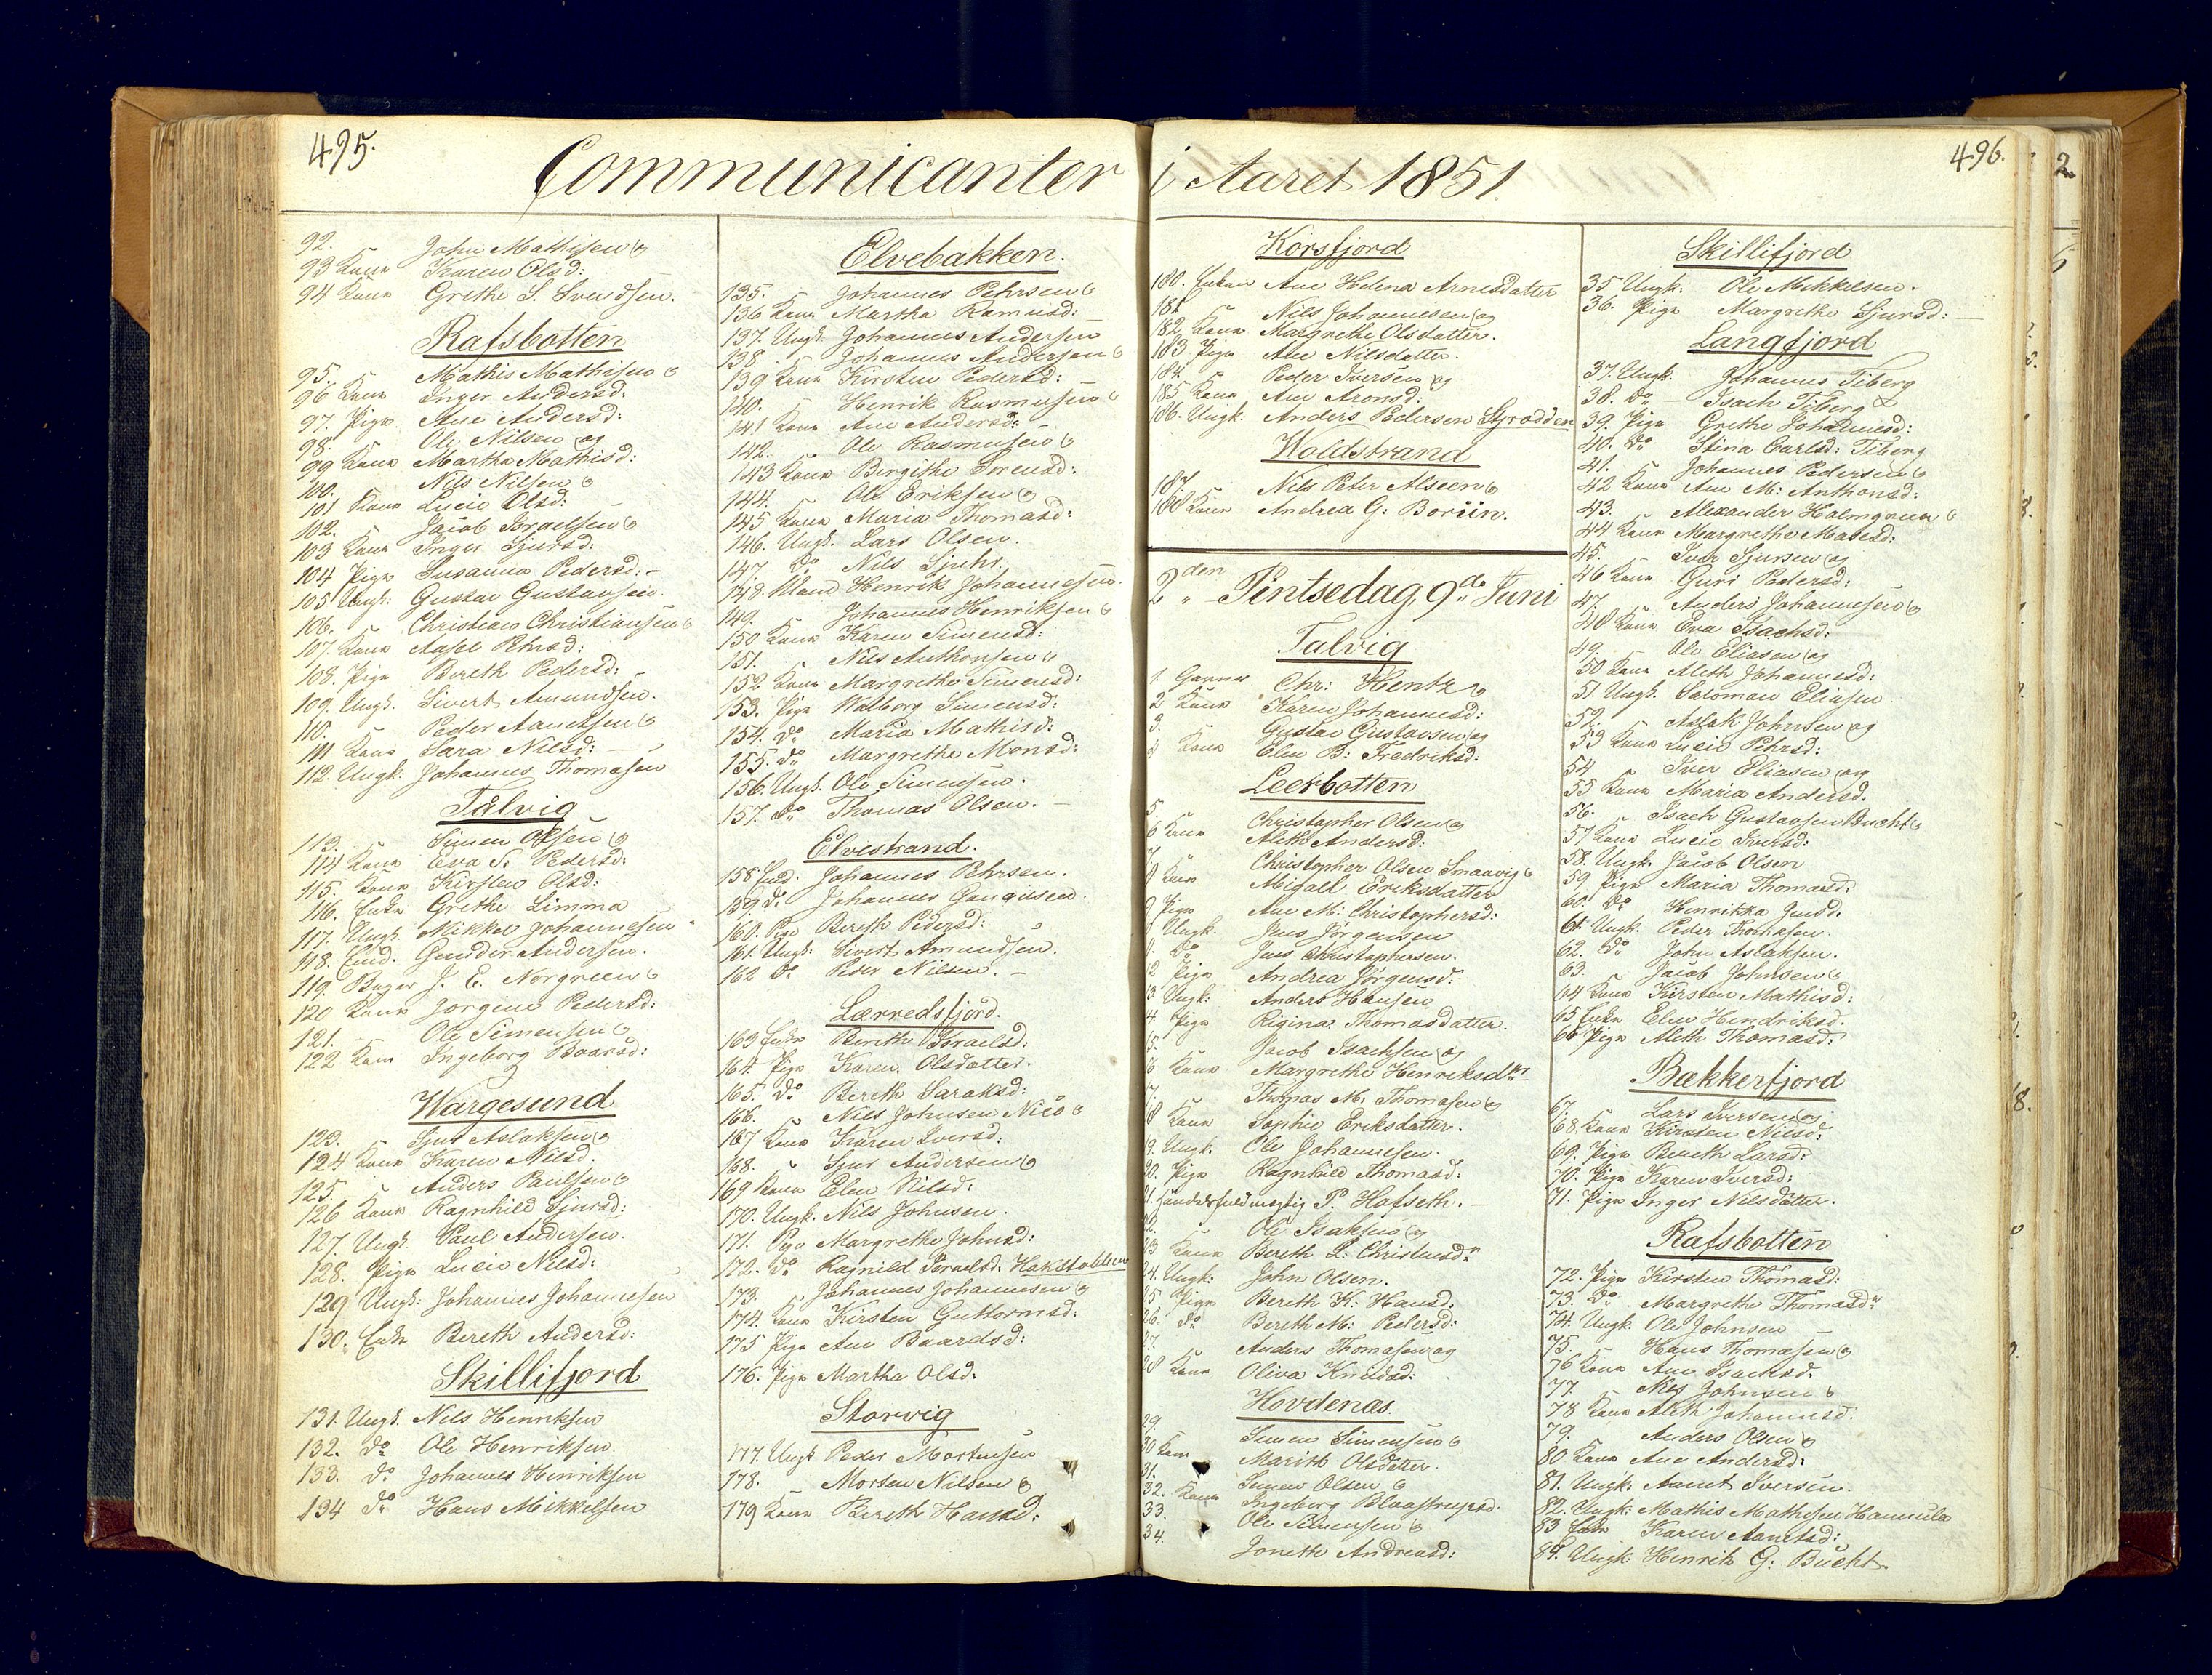 495.
Communicanter
92. John Mathisen og
93 Kona Karen Olsd:
94 Kona Grethe S. Svendsen.
Rafsbotten
95. Mathis Mathisen og
96 Kona Inger Andersd:
97. Pige Ane Andersd:
98. Ole Nilsen og
99 Kona Martha Mathisd:
100. Nils Nilsen og
101 Kona Lucie Olsd:
102. Jacob Israelsen og
103 Kona Inger Sjursd:
104 Pige Susanna Pedersd:
105 Ungk: Gustav Gustavsen.
106. Christian Christiansen og
107. Kona Aasel Pehrsd:
108. Pige Bereth Pedersd:
109. Ungk. Sivert Amundsen.
110. Peder Aanetsen og
111 Kona Sara Nilsd:
112. Ungk: Johannes Thomasen
Talvig
113. Simen Olsen og
114 Kona Eva S: Pedersd:
115. Kona Kirsten Olsd:
116. Enke Grethe Limma
117. Ungk. Mikkel Johannesen
118. Gunder Andersen.
119. Bager J. E. Norgreen og
120 Kona Jorgine Pedersd:
121. Ole Simensen og
122 Kona Ingeborg Baarsd:
Wargesund
123. Sjur Aslaksen og
124 Kona Karen Nilsd.
125. Anders Paulsen og
126 Kona Ragnhild Sjursd:
127. Ungk. Paul Andersen.
128. Pige Lucie Nilsd:
129 Ungk: Johannes Johannesen
130. Enke Bereth Andersd:
Skillifjord
131. Ungk. Nils Henriksen
132. do Ole Henriksen
133. do Johannes Henriksen
134 do Hans Mikkelsen
Elvebakken.
135. Johannes Pehrsen og
136 Kona Martha Rasmusd:
137. Ungk. Johannes Andersen
138. Johannes Andersen og
139 Kona Kirsten Pedersd:
140. Henrik Rasmusen og
141 Kona Ane Andersd:
142. Ole Rasmusen og
143 Kona Bergithe Irensd:
144. Ole Eriksen og
145 Kona Maria Thomasd:
146. Ungk. Lars Olsen.
147 do Nils Sjuhr.
148. Mand Henrik Johannesen.
149. Johannes Henriksen og
150 Kona Karen Simensd:
151. Nils Anthonsen og
152 Kona Margrethe Simensd:
153. Pige Walborg Simensd:
154. do Maria Mathisd:
155. do Margrethe Monsd:
156. Ungk. Ole Simensen.
157. do Thomas Olsen.
Elvestrand.
158 Johannes Pehrsen.
159 do Johannes
160. Pige Bereth Pedersd:
161. Ungk: Sivert Amundsen.
162 do Peder Nilsen.
Lærredsfjord.
163 Enke Bereth Israelsd:
164. Pige Karen Olsdatter.
165. do Bereth Saraksd:
166. Nils Johnsen Nico og
167 Kona Karen Iversd.
168. Sjur Andersen og
169 Kona Elen Nilsd:
170. Ungk. Nils Johnsen.
171. Pige Margrethe Johnsd:
172. do Ragnild Israelsd. Hakstabben
173. Johannes Johannesen og
174. Kona Kirsten Guttormsd:
175 Pige Ane Baardsd:
176. Pige Martha Olsd.
Storvig
177. Ungk Peder Mortensen
178. Morten Nilsen og
179 Kona Bereth Hansd:
496.
i Aaret 1851
Korsfjord
180. Enken Ane Helena Arnesdatter
181 Nils Johannesen og
182. Kona Margrethe Olsdatter.
183 Pige Ane Nilsdatter.
184. Peder Iversen og
185 Kona Ane Aronsd:
186. Ungk: Anders Pedersen Styrødden
Woldstrand
187. Nils Peter Alseen og
188 Kona Andrea G: Boriin.
2den Pintsedag, 9de Juni
Talvig
1. Garver Chr: Hentz og
2 Kona Karen Johannesd:
3. Gustav Gustavsen og
4 Kona Elen B: Fredriksd:
Leerbotten
5. Christopher Olsen og
6 Kona Aleth Andersd:
7. Christopher Olsen Smaavig og
8 Kona Migall Eriksdatter
9. Pige Ane M: Christophersd:
Ungk. Jens Jörgensen
11. do Jens Christophersen.
2 Pige Andrea Jörgensd:
3 Ungk: Anders Hansen
4. Pige Rigina Thomasdatter.
5. Jacob Isachsen og
6 Kona Margrethe Henriksdtr
7. Thomas M: Thomasen og
18 Kona Sophie Eriksdatter.
9. Ungk. Ole Johannesen.
20. Pige Ragnhild Thomasd:
21. Handelsfuldmægtig P. Hofseth.
22. Ole Isaksen og
23 Kona Bereth L: Christensdr
24. Ungk: John Olsen.
25 Pige Bereth K: Hansd.
26. do Bereth M: Pedersd:
27. Anders Thomasen og
28 Kona Oliva Knudsd:
Hovdenæs.
29 Simen Simensen og
30 Kona Marith Olsdatter.
31. Simen Olsen og
32. Kona Ingeborg Blaastrupsd.
33. Ole Simensen og
34. Jonette Andreasd:
Skillifjord
35 Ungk: Ole Mikkelsen.
36. Pige Margrethe Sjursd:
Langfjord
37. Ungk. Johannes Tiberg
38. do Isach Tiberg
39. Pige Grethe Johannesd:
40. do Stina Carlsd: Tiberg
41. Johannes Pedersen og
42 Kona Ane M: Anthonsd:
43. Alexander Halmgreen og
44 Kona Margrethe Matesd:
45. Iver Sjursen og
46 Kona Guri Pedersd:
47. Anders Johannesen og
48 Kona Eva Isachsd:
49. Ole Eliasen og
50 Kona Aleth Johannesd:
51. Ungk. Salomon Eliasen
52. Aslak Johnsen og
53 Kona Lucie Pehrsd:
54 Iver Eliasen og
55 Kona Maria Andersd.
56. Isach Gustavsen Bucht og
57 Kona Lucie Iversd:
58. Ungk. Jacob Olsen
59 Pige Maria Thomasd:
60. do Henrikka Jensd.
61. Ungk. Peder Thomasen.
62. do John Aslaksen.
63. Jacob Johnsen og
64 Kona Kirsten Mathisd:
65 Enke Elen Hendriksd.
66 Pige Aleth Thomasd:
Bækkerfjord
67. Lars Iversen og
68. Kona Kirsten Nilsd:
69. Pige Bereth Larsd:
70. Pige Karen Iversd:
71. Pige Inger Nilsdatter.
Rafsbotten
72. Pige Kirsten Thomasd:
73. do Margrethe Thomasdr
74. Ungk. Ole Johnsen
75. Hans Thomasen og
76 Kona Ane Isachsd.
77. Nils Johnsen og
78 Kona Aleth Johannesd:
79. Anders Olsen og
80 Kona Ane Andersd:
81. Ungk: Aanut Iversen.
82. Ungk: Mathis Mathisen Hannula
83 Enke Karen Aanetsd:
84. Ungk: Henrik G: Bucht.
2